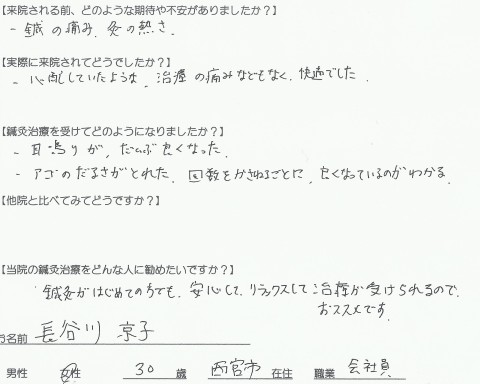 【来院される前、どのような期待や不安がありましたか？】
- 鍼の痛み、灸の熱さ。
【実際に来院されてどうでしたか？】
- 心配していたような、治療の痛みなどもなく、快適でした。
【鍼灸治療を受けてどのようになりましたか？】
- 耳鳴りが、だいぶ良くなった。
- アゴのだるさがとれた。回数をかさねるごとに、良くなっているのがわかる。
【他院と比べてみてどうですか？】
【当院の鍼灸治療をどんな人に勧めたいですか？】
鍼灸がはじめての方でも、安心して、リラックスして治療が受けられるので、
おススメです。
お名前 長谷川 京子
男性 女性 30 歳 西宮市 在住 職業 会社員